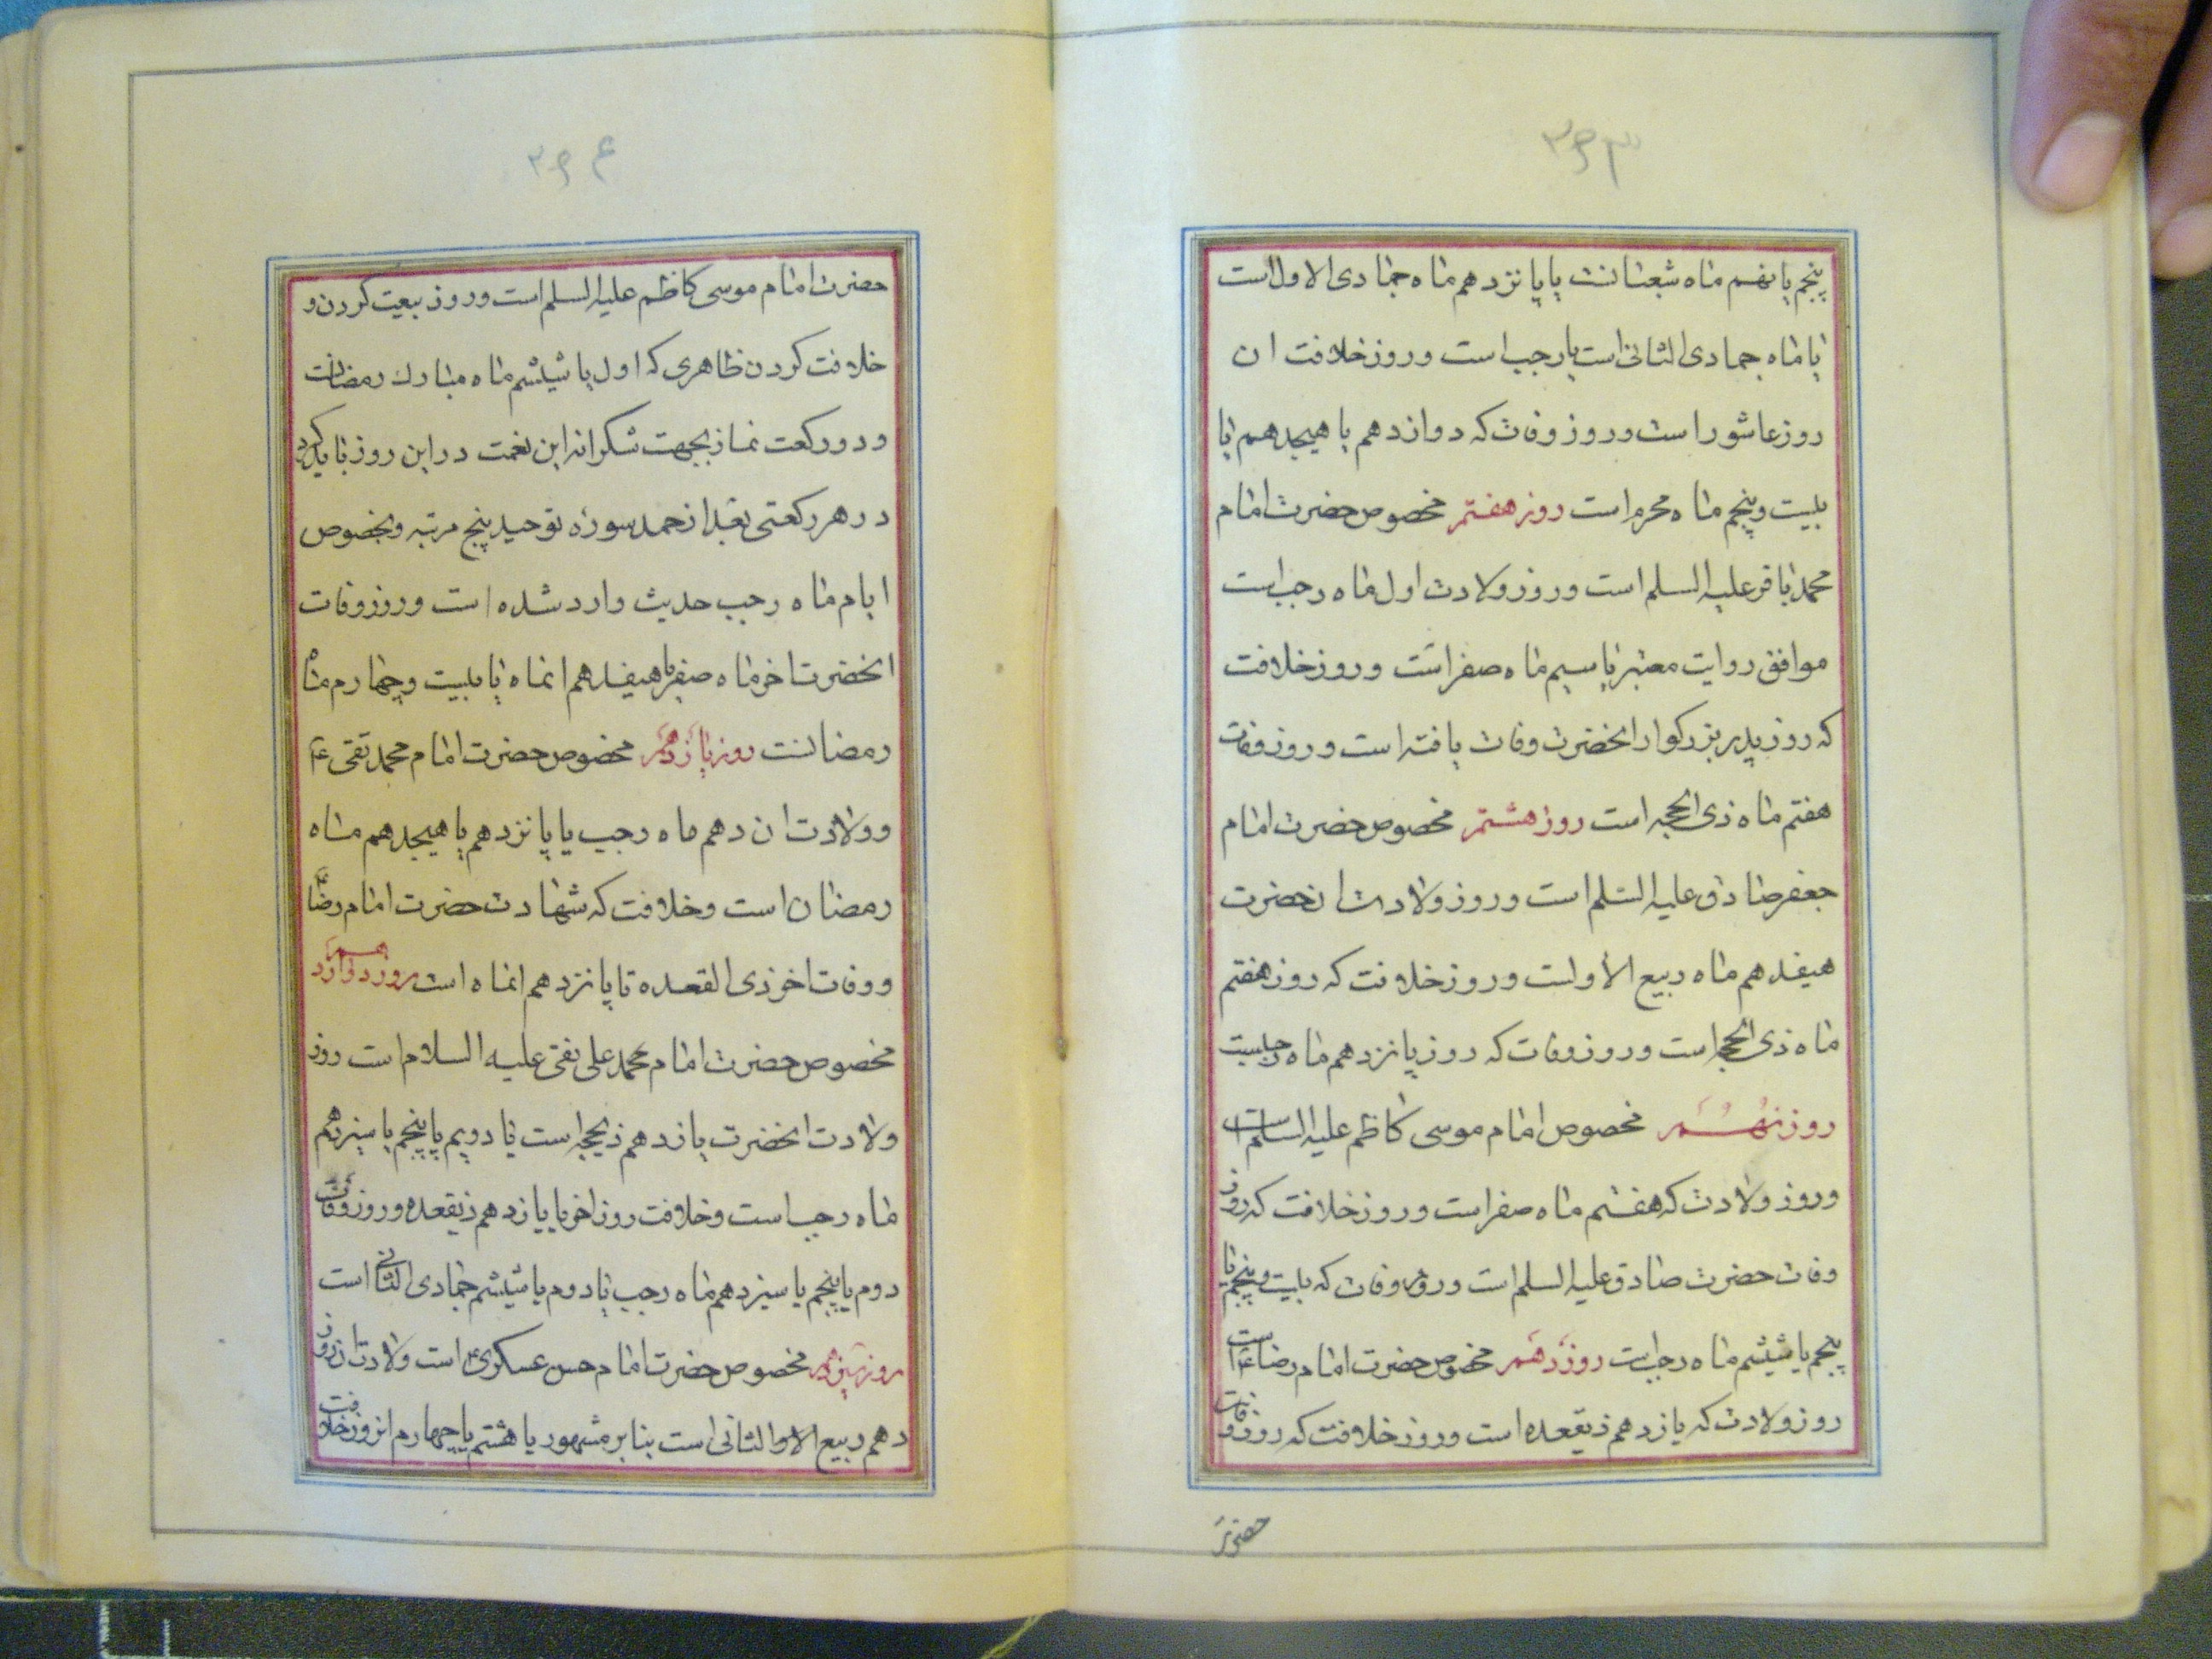 ۲۹۳
پنجم یا نهم ماه شعبانست یا پانزدهم ماه جمادی الاول است
یا ماه جمادی الثانی است یا رجب است و روز خلافت ان
روز عاشورا است و روز وفات که دوازدهم یا هیجدهم یا
بیست و پنجم ماه محرم است روز هفتم مخصوص حضرت امام
محمد باقر علیه السلم است و روز ولادت اول ماه رجب است
موافق روایت معتبر یا سیم ماه صفر است و روز خلافت
که روز پدر بزرکوار انحضرت وفات یافته است و روز وفات
هفتم ماه ذی الحجه است روز هشتم مخصوص حضرت امام
جعفر صادق علیه السلم است و روز ولادت ان حضرت
هیفدهم ماه ربیع الاولست و روز خلافت که روز هفتم
ماه ذی الحجه است و روز وفات که روز پانزدهم ماه رجبست
روز نهم مخصوص امام موسی کاظم علیه السلم است
و روز ولادت که هفتم ماه صفر است و روز خلافت که روز
وفات حضرت صادق علیه السلم است و روز وفات که بیست و پنجم یا
پنجم یا ششم ماه رجب است روز دهم مخصوص حضرت امام رضا ع است
روز ولادت که یازدهم ذیقعده است و روز خلافت که روز وفات
حضرت
۲۹۴
حضرت امام موسی کاظم علیه السلم است و روز بیعت کردن و
خلافت کردن ظاهری که اول یا ششم ماه مبارک رمضانست
و دو رکعت نماز بجهت شکرانه این نعمت در این روز باید کرد
در هر رکعتی بعد از حمد سوره توحید پنج مرتبه و بخصوص
ایام ماه رجب حدیث وارد شده است و روز وفات
انحضرت اخر ماه صفر یا هیفدهم انماه یا بیست و چهارم ماه
رمضانست روز یازدهم مخصوص حضرت امام محمد تقی ع
و ولادت ان دهم ماه رجب یا پانزدهم یا هیجدهم ماه
رمضان است و خلافت که شهادت حضرت امام رضا ع
و وفات اخر ذی القعده تا پانزدهم انماه است روز دوازدهم
مخصوص حضرت امام محمد علی نقی علیه السلام است روز
ولادت انحضرت یازدهم ذیحجه است یا دویم یا پنجم یا سیزدهم
ماه رجب است و خلافت روز اخر یا یازدهم ذیقعده و روز وفات
دوم یا پنجم یا سیزدهم ماه رجب یا دوم یا ششم جمادی الثانی است
روز سیزدهم مخصوص حضرت امام حسن عسکری ع است ولادت ان روز
دهم ربیع الاول الثانی است بنابر مشهور یا هشتم یا چهارم انروز خلافت